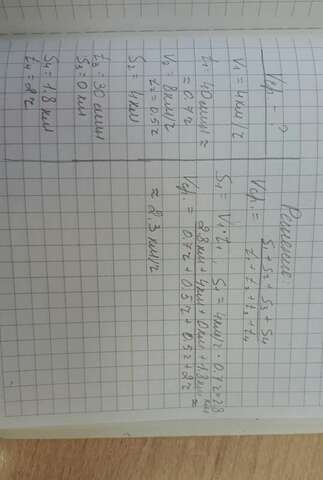 Vср. - ?
V₁ = 4 км/ч
t₁ = 40 мин ≈
≈ 0.7 ч
V₂ = 8 км/ч
t₂ = 0.5 ч
S₂ = 4 км
t₃ = 30 мин
S₃ = 0 км
S₄ = 1.8 км
t₄ = 2 ч
Решение:
Vср. = S₁ + S₂ + S₃ + S₄
t₁ + t₂ + t₃ + t₄
S₁ = V₁·t₁, S₁ = 4 км/ч · 0.7 ч = 2.8 км
Vср. = 2.8 км + 4 км + 0 км + 1.8 км ≈
0.7 ч + 0.5 ч + 0.5 ч + 2 ч
≈ 2.3 км/ч